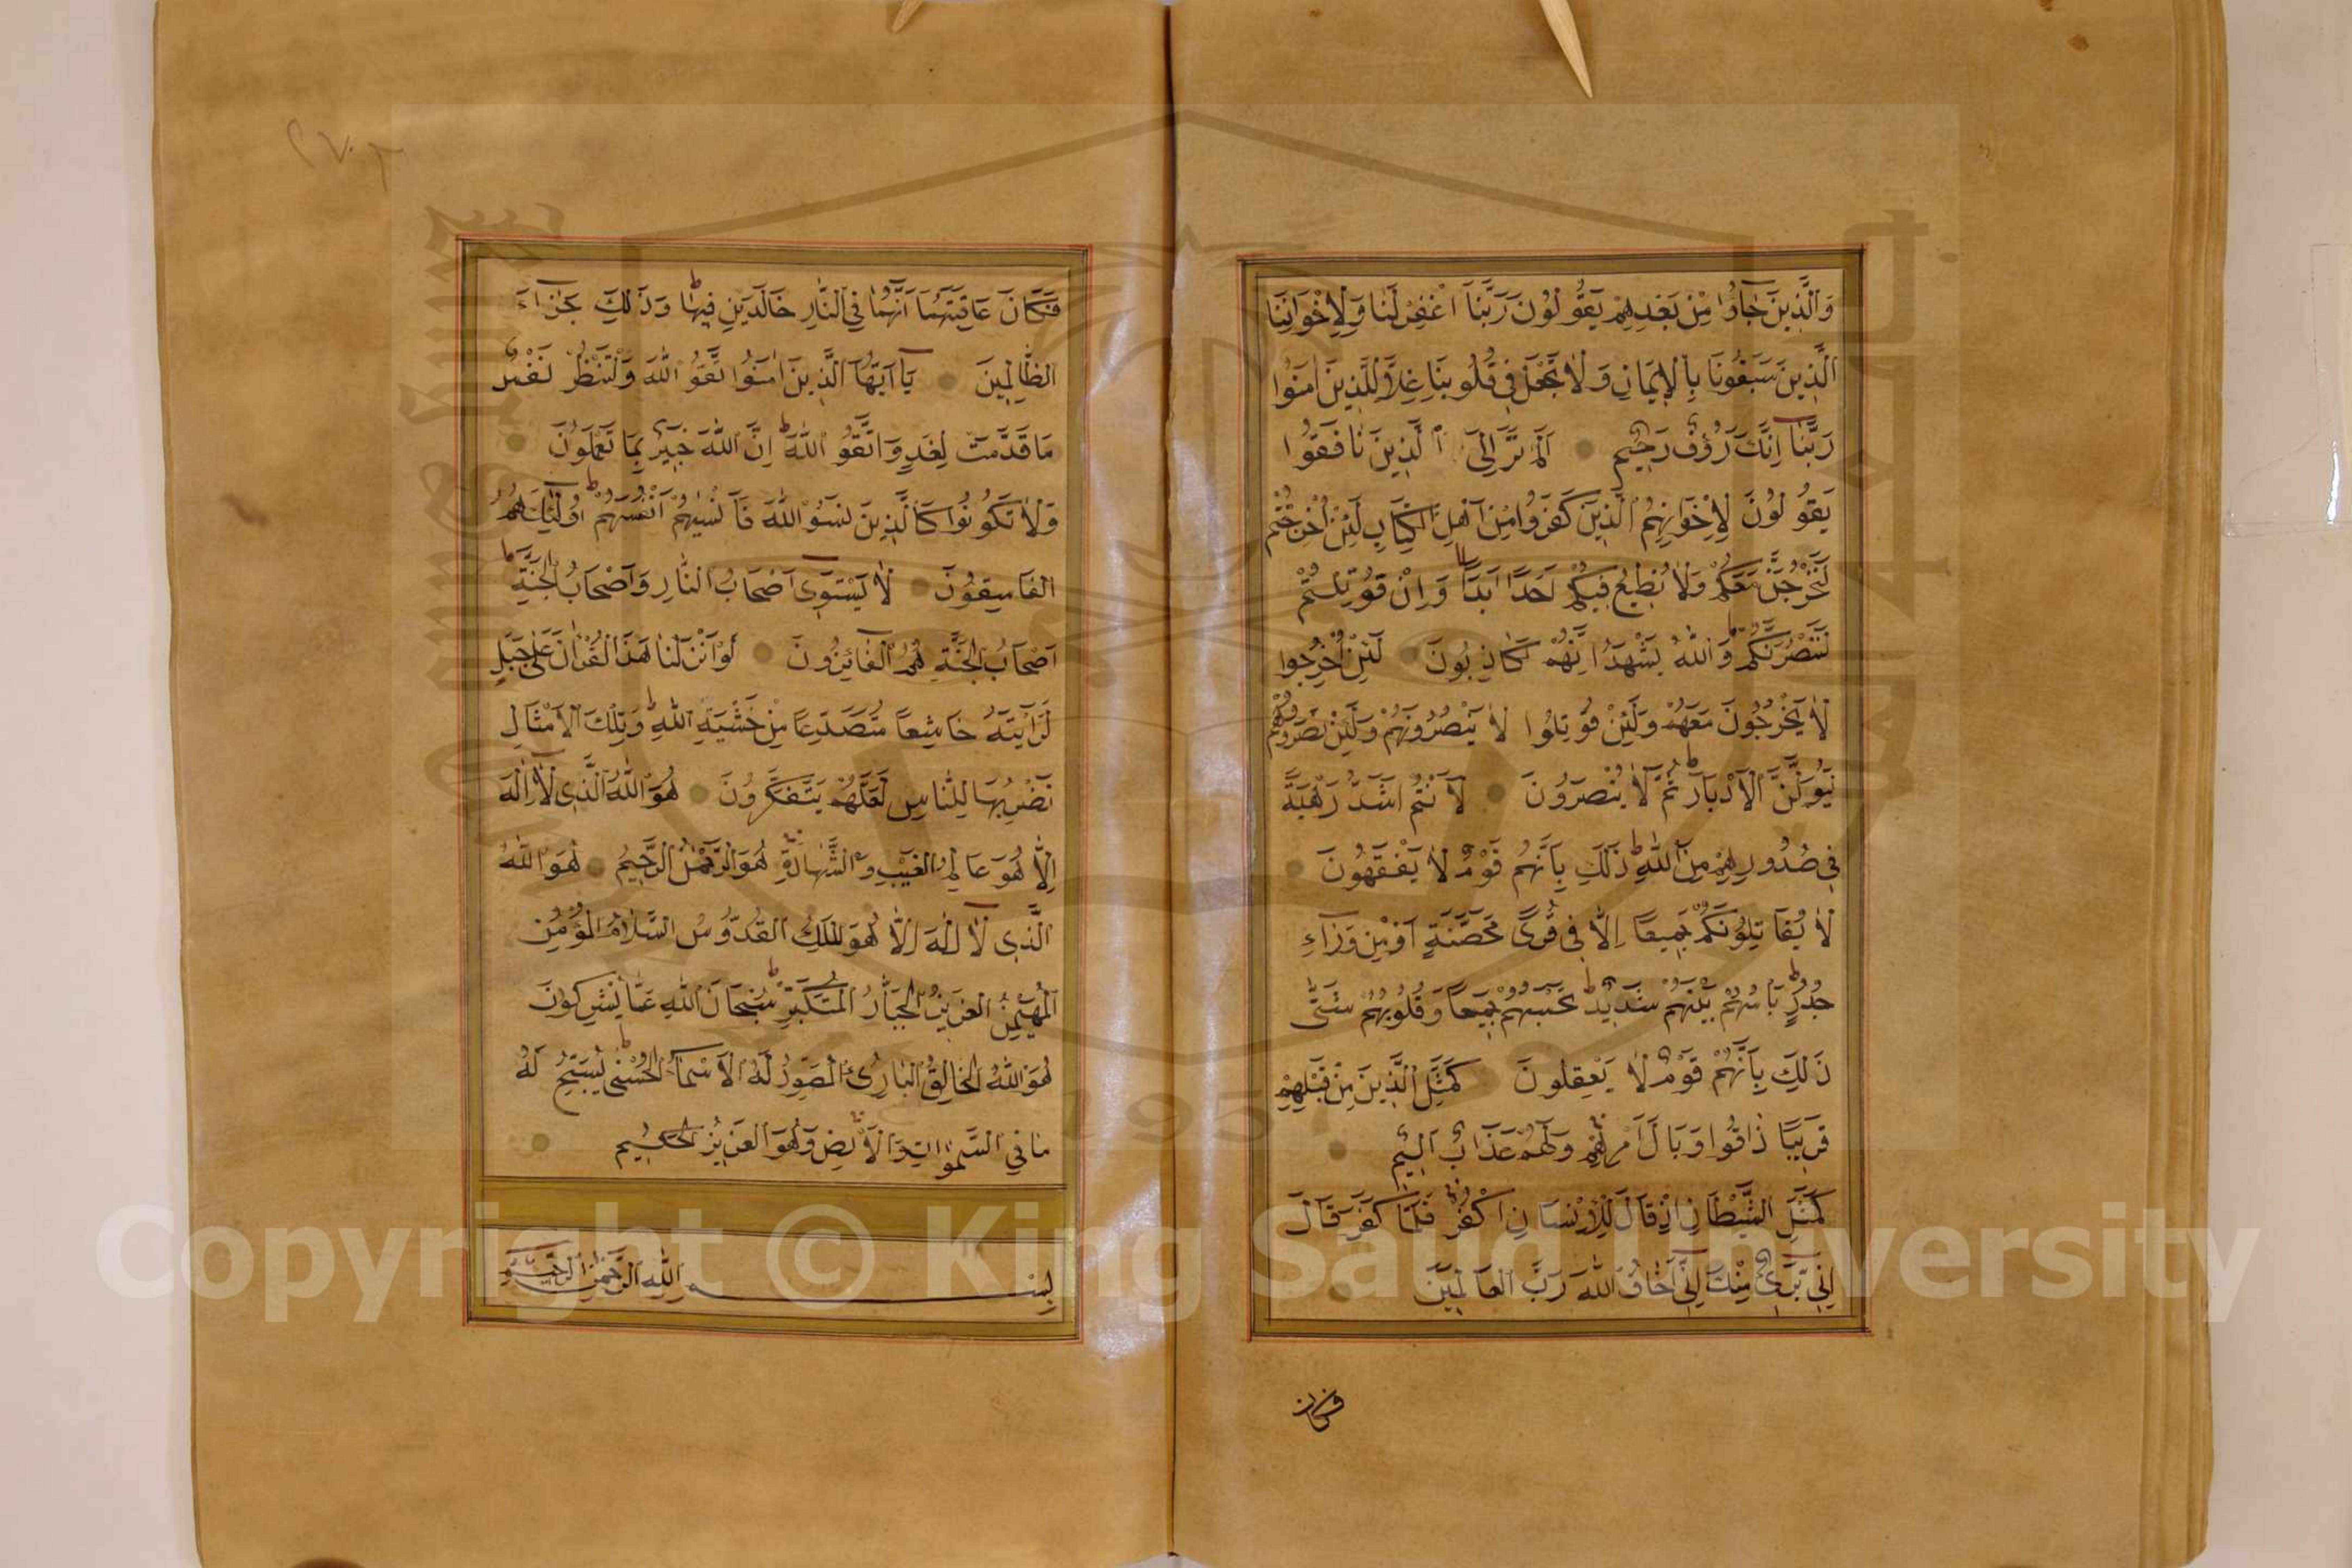 وَالَّذِينَ جَاؤُا مِنْ بَعْدِهِمْ يَقُولُونَ رَبَّنَا اغْفِرْ لَنَا وَلِإِخْوَانِنَا
الَّذِينَ سَبَقُونَا بِالْإِيمَانِ وَلَا تَجْعَلْ فِي قُلُوبِنَا غِلًّا لِلَّذِينَ امَنُوا
رَبَّنَا اِنَّكَ رَؤُفٌ رَحِيمٌ اَلَمْ تَرَ اِلَى الَّذِينَ نَافَقُوا
يَقُولُونَ لِإِخْوَانِهِمُ الَّذِينَ كَفَرُوا مِنْ اَهْلِ الْكِتَابِ لَئِنْ اُخْرِجْتُمْ
لَنَخْرُجَنَّ مَعَكُمْ وَلَا نُطِيعُ فِيكُمْ اَحَدًا اَبَدًا وَاِنْ قُوتِلْتُمْ
لَنَنْصُرَنَّكُمْ وَاللّٰهُ يَشْهَدُ اِنَّهُمْ لَكَاذِبُونَ لَئِنْ اُخْرِجُوا
لَا يَخْرُجُونَ مَعَهُمْ وَلَئِنْ قُوتِلُوا لَا يَنْصُرُونَهُمْ وَلَئِنْ نَصَرُوهُمْ
لَيُوَلُّنَّ الْاَدْبَارَ ثُمَّ لَا يُنْصَرُونَ لَاَنْتُمْ اَشَدُّ رَهْبَةً
فِي صُدُورِهِمْ مِنَ اللّٰهِ ذَلِكَ بِاَنَّهُمْ قَوْمٌ لَا يَفْقَهُونَ
لَا يُقَاتِلُونَكُمْ جَمِيعًا اِلَّا فِي قُرًى مُحَصَّنَةٍ اَوْ مِنْ وَرَاءِ
جُدُرٍ بَاْسُهُمْ بَيْنَهُمْ شَدِيدٌ تَحْسَبُهُمْ جَمِيعًا وَقُلُوبُهُمْ شَتّٰى
ذَلِكَ بِاَنَّهُمْ قَوْمٌ لَا يَعْقِلُونَ كَمَثَلِ الَّذِينَ مِنْ قَبْلِهِمْ
قَرِيبًا ذَاقُوا وَبَالَ اَمْرِهِمْ وَلَهُمْ عَذَابٌ اَلِيمٌ
كَمَثَلِ الشَّيْطَانِ اِذْ قَالَ لِلْاِنْسَانِ اكْفُرْ فَلَمَّا كَفَرَ قَالَ
اِنِّي بَرِيءٌ مِنْكَ اِنِّي اَخَافُ اللّٰهَ رَبَّ الْعَالَمِينَ
فكان
٢٧٠٣
فَكَانَ عَاقِبَتَهُمَا اَنَّهُمَا فِي النَّارِ خَالِدَيْنِ فِيهَا وَذَلِكَ جَزَاءُ
الظَّالِمِينَ يَا اَيُّهَا الَّذِينَ امَنُوا اتَّقُوا اللّٰهَ وَلْتَنْظُرْ نَفْسٌ
مَا قَدَّمَتْ لِغَدٍ وَاتَّقُوا اللّٰهَ اِنَّ اللّٰهَ خَبِيرٌ بِمَا تَعْمَلُونَ
وَلَا تَكُونُوا كَالَّذِينَ نَسُوا اللّٰهَ فَاَنْسٰيهُمْ اَنْفُسَهُمْ اُولٰئِكَ هُمُ
الْفَاسِقُونَ لَا يَسْتَوِي اَصْحَابُ النَّارِ وَاَصْحَابُ الْجَنَّةِ
اَصْحَابُ الْجَنَّةِ هُمُ الْفَائِزُونَ لَوْ اَنْزَلْنَا هَذَا الْقُرْاٰنَ عَلَى جَبَلٍ
لَرَاَيْتَهُ خَاشِعًا مُتَصَدِّعًا مِنْ خَشْيَةِ اللّٰهِ وَتِلْكَ الْاَمْثَالُ
نَضْرِبُهَا لِلنَّاسِ لَعَلَّهُمْ يَتَفَكَّرُونَ هُوَ اللّٰهُ الَّذِي لَا اِلٰهَ
اِلَّا هُوَ عَالِمُ الْغَيْبِ وَالشَّهَادَةِ هُوَ الرَّحْمٰنُ الرَّحِيمُ هُوَ اللّٰهُ
الَّذِي لَا اِلٰهَ اِلَّا هُوَ الْمَلِكُ الْقُدُّوسُ السَّلَامُ الْمُؤْمِنُ
الْمُهَيْمِنُ الْعَزِيزُ الْجَبَّارُ الْمُتَكَبِّرُ سُبْحَانَ اللّٰهِ عَمَّا يُشْرِكُونَ
هُوَ اللّٰهُ الْخَالِقُ الْبَارِئُ الْمُصَوِّرُ لَهُ الْاَسْمَاءُ الْحُسْنٰى يُسَبِّحُ لَهُ
مَا فِي السَّمٰوَاتِ وَالْاَرْضِ وَهُوَ الْعَزِيزُ الْحَكِيمُ
بِسْمِ اللّٰهِ الرَّحْمٰنِ الرَّحِيمِ
Copyright © King Saud University
1957